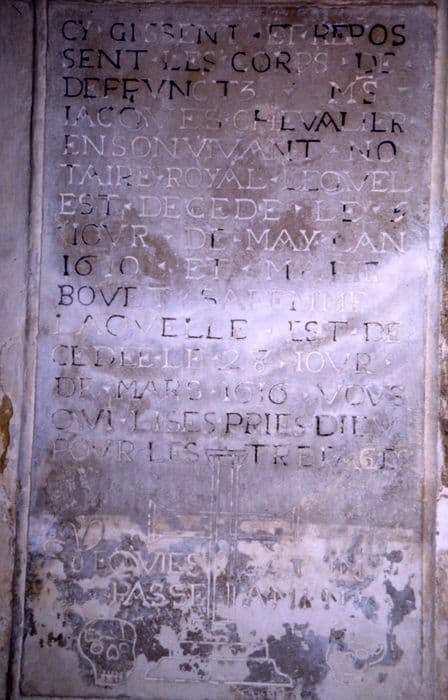 CY GISSENT · ET REPOS
SENT LES CORPS · DE
DEFFVNCTS MS
IACQVES CHEVALIER
EN SON VIVANT NO
TAIRE ROYAL LEQVEL
EST · DECEDE · LE · 5
IOVR · DE · MAY · LAN
1610 · ET · MARIE
BOVET SA FEMME
LAQVELLE · EST · DE
CEDEE LE · 28 · IOVR ·
DE · MARS · 1616 · VOVS
QVI · LISES PRIES DIEV
POVR · LES · TREPASES
PASSE